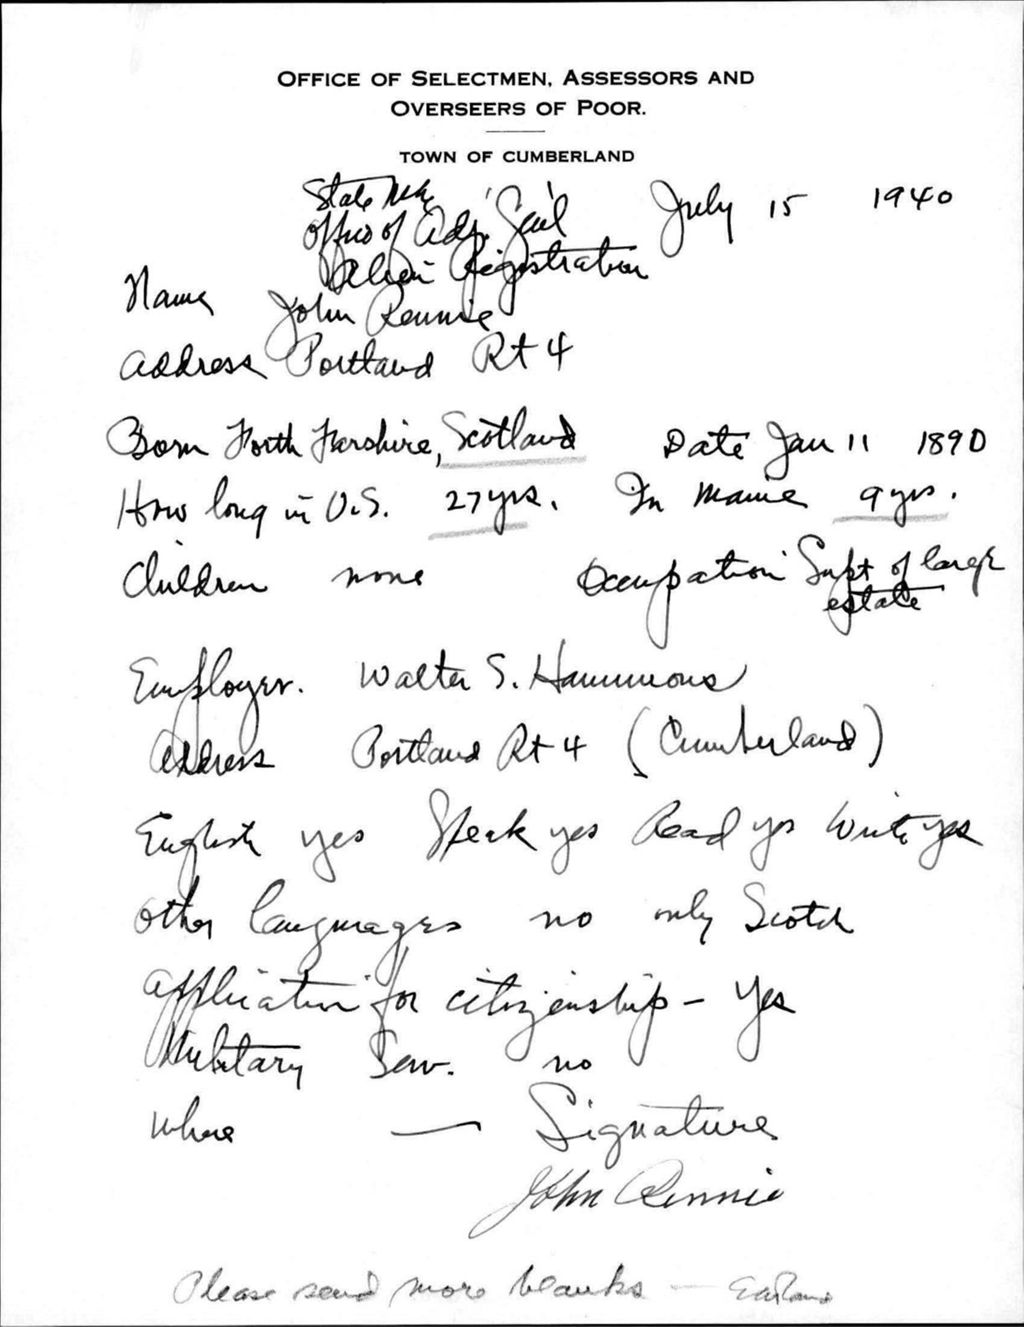 OFFICE OF SELECTMEN, ASSESSORS AND
OVERSEERS OF POOR.
TOWN OF CUMBERLAND
State Me
Office of Adj. Gen'l July 15 1940
Alien Registration
Name John Rennie
Address Portland Rt 4
Born Forth Farshire, Scotland Date Jan 11 1890
How long in U.S. 27 yrs. In Maine 9 yrs.
Children none Occupation Supt of large
estate
Employer. Walter S. Hammons
Address Portland Rt 4 (Cumberland)
English yes Speak yes Read yes Write yes
Other languages no only Scotch
Application for citizenship - Yes
Military Serv. no
Where — Signature
John Rennie
Please send more blanks —